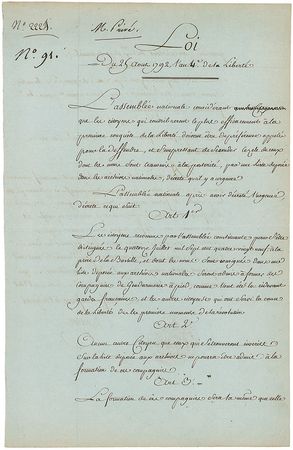 N.° 2221.
M. Privé.
N.° 91.
Loi
Du 25 Aout 1792. l'an 4e. de la Liberté.
L'assemblée nationale considérant
que les citoyens qui contribuèrent le plus efficacement à la
première conquête de la liberté, doivent être des premiers appelés
pour la deffendre, et s'empressant de seconder le zèle de ceux
dont les noms sont transmis à la postérité, par une liste déposée
dans les archives nationales, décrète qu'il y a urgence
L'assemblée nationale après avoir décrété l'urgence
décrète ce qui suit.
Art 1er.
Les citoyens reconnus par l'assemblée constituante pour s'être
distingués le quatorze juillet mil sept cent quatre vingt neuf à la
prise de la Bastille, et dont les noms sont consignés dans une
liste déposée aux archives nationales, seront admis à former des
compagnies de Gendarmerie à pied, comme l'ont été les cidevant
gardes françaises, et les autres citoyens qui ont servi la cause
de la liberté dès les premiers moments de la révolution
Art 2e.
Aucuns autres Citoyens que ceux qui se trouveront inscrits
sur la liste déposée aux archives ne pourra être admis à la
formation de ces compagnies
Art 3e.
La formation de ces compagnies sera la même que celle